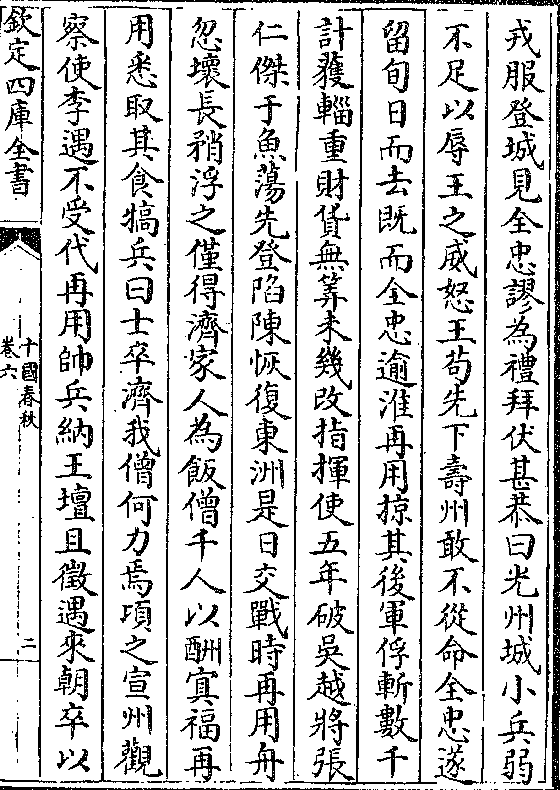 戎服登城見全忠謬為禮拜伏甚恭曰光州城小兵弱
不足以辱王之威怒王茍先下壽州敢不從命全忠遂
留旬日而去既而全忠逾淮再用掠其後軍俘斬數千
計獲輜重財貨無筭未幾改指揮使五年破吳越將張
仁傑于魚蕩先登陷陳恢復東洲是日交戰時再用舟
忽壞長矟浮之僅得濟家人為飯僧千人以酬冥福再
用悉取其食犒兵曰士卒濟我僧何力焉頃之宣州觀
察使李遇不受代再用帥兵納王壇且徵遇來朝卒以
欽定四庫全書
十國春秋
卷六
二